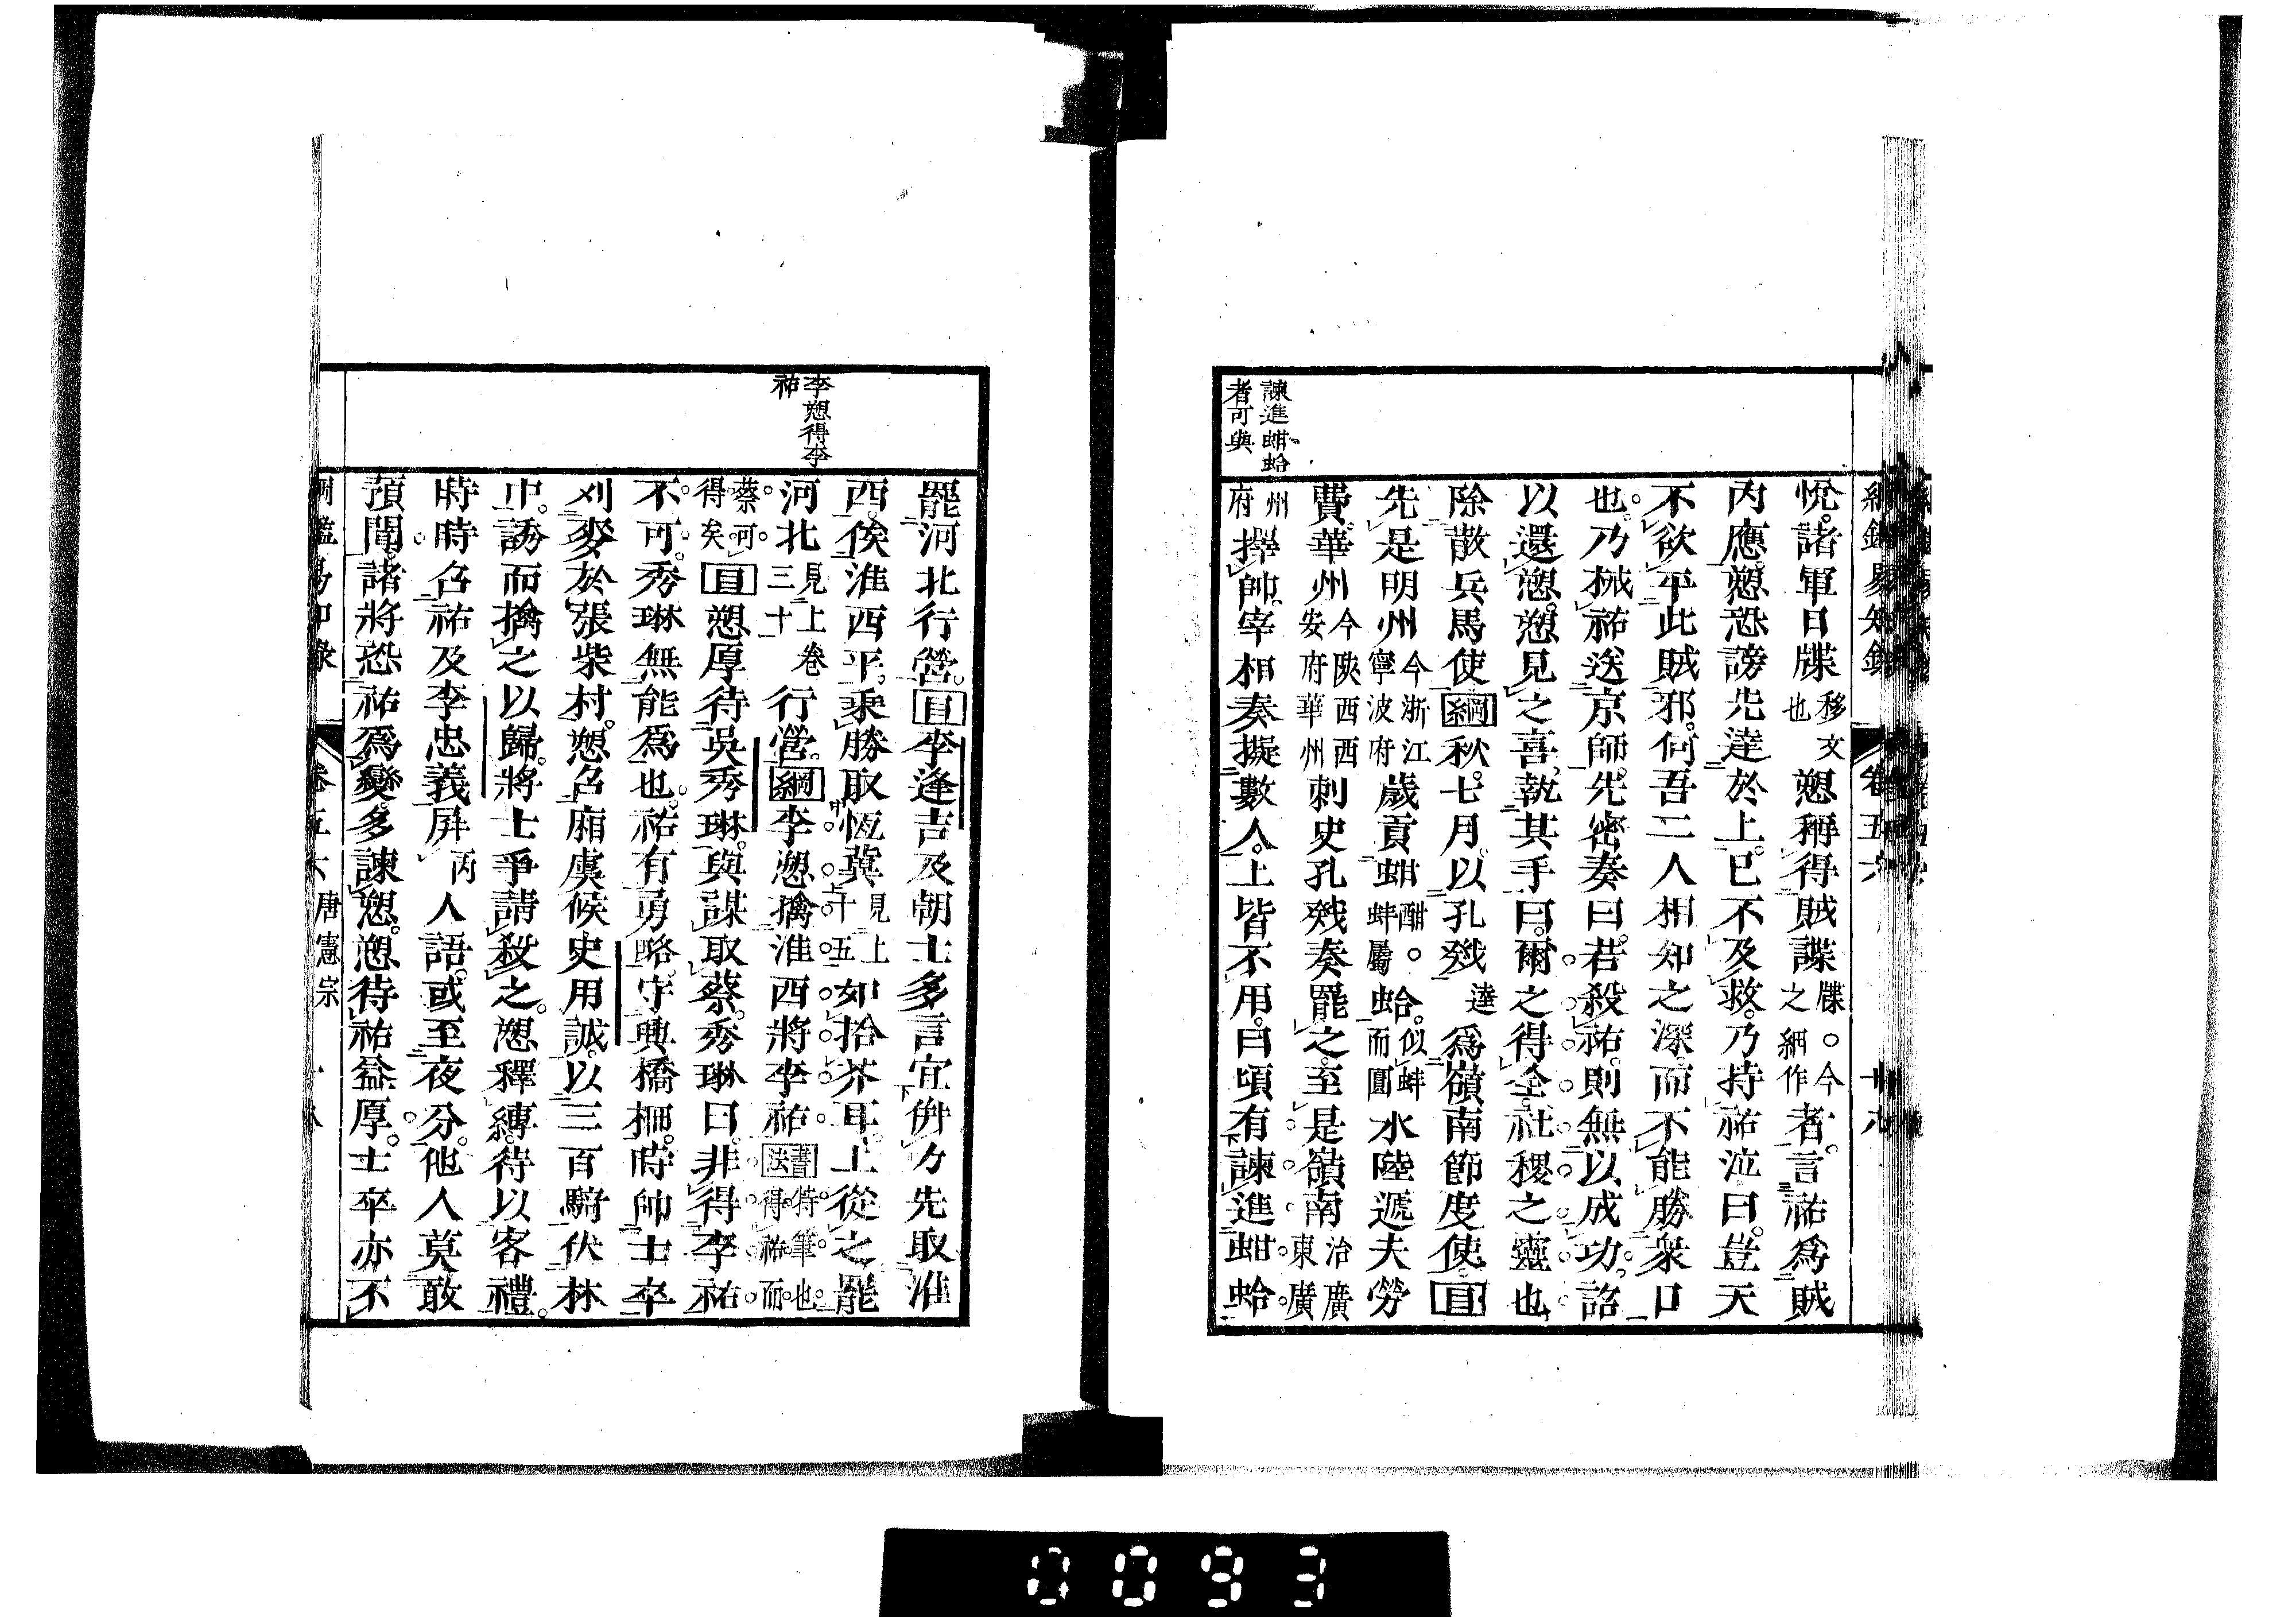 綱鑑易知錄 卷五六 十九
悅。諸軍日牒移文也愬稱得賊諜牒。今之細作者。言祐爲賊
內應。愬恐謗先達於上。已不及救。乃持祐泣曰。豈天
不欲平此賊邪。何吾二人相知之深。而不能勝衆口
也。乃械祐送京師。先密奏曰。若殺祐。則無以成功。詔
以還愬。愬見之喜。執其手曰。爾之得全。社稷之靈也。
除散兵馬使。綱秋七月。以孔戣逵爲嶺南節度使。目
先是明州今浙江寧波府歲貢蚶酣。蚌屬蛤。似蚌而圓水陸遞夫勞
費。華州今陝西西安府華州刺史孔戣奏罷之。至是嶺南治廣東廣
州府擇帥。宰相奏擬數人。上皆不用。曰頃有諫進蚶蛤。
諫進蚶蛤
者可與
李愬得李
祐
罷河北行營。目李逢吉及朝士多言宜併力先取淮
西。俟淮西平。乘勝取恆冀見上十五如拾芥耳。上從之。罷
河北見上卷三十行營。綱李愬擒淮西將李祐書法特筆也。得祐而
蔡可得矣目愬厚待吳秀琳。與謀取蔡。秀琳曰。非得李祐
不可。秀琳無能爲也。祐有勇略。守興橋柵。時帥士卒
刈麥於張柴村。愬召廂虞候史用誠。以三百騎伏林
中。誘而擒之以歸。將士爭請殺之。愬釋縛。待以客禮。
時時召祐及李忠義屏丙人語。或至夜分。他人莫敢
預聞。諸將恐祐爲變。多諫愬。愬待祐益厚。士卒亦不
綱鑑易知錄 卷五六 唐憲宗 十八
0093